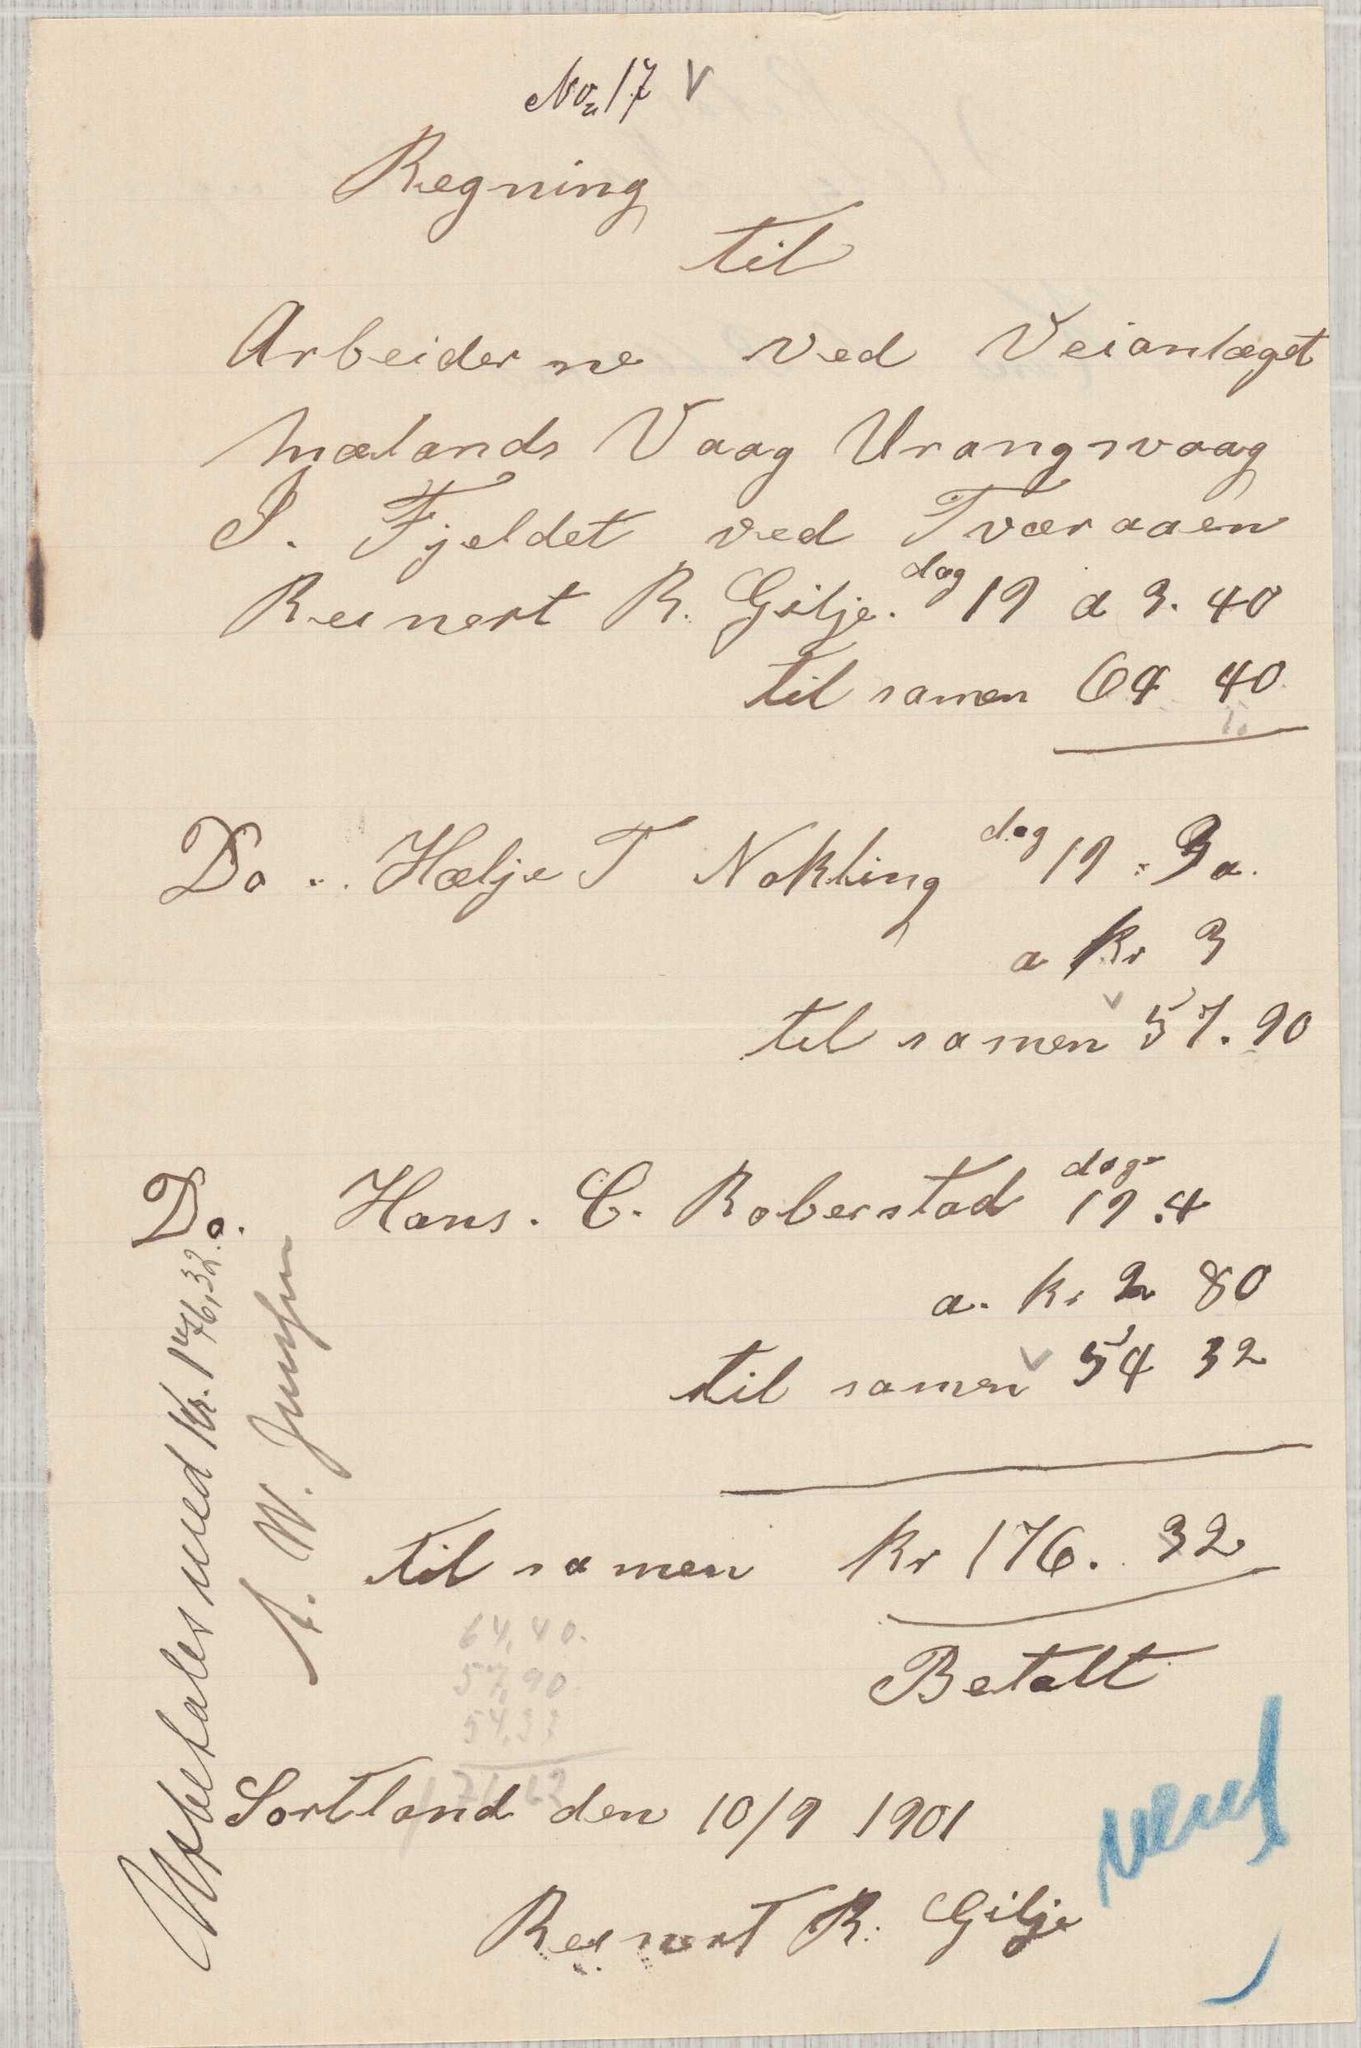 No 17 V
Regning
til
Arbeiderne ved Veianlæget
Mælands Vaag Urangsvaag
I. Fjeldet ved Tværaaen
Reinert R. Gilje. dag 19 a 3. 40
til samen 64 40
Do .. Hælje T Nokling dag 19 : 3 a.
a Kr 3
til samen 57. 90
Do. Hans. C. Roberstad dage 19.4
a. kr 2 80
til samen 54 32
til samen Kr 176. 32
Betalt
64,40.
57,90.
54,32
Sortland den 10/9 1901
Reinert R. Gilje
Udbetales med Kr. 176,32.
A. W.